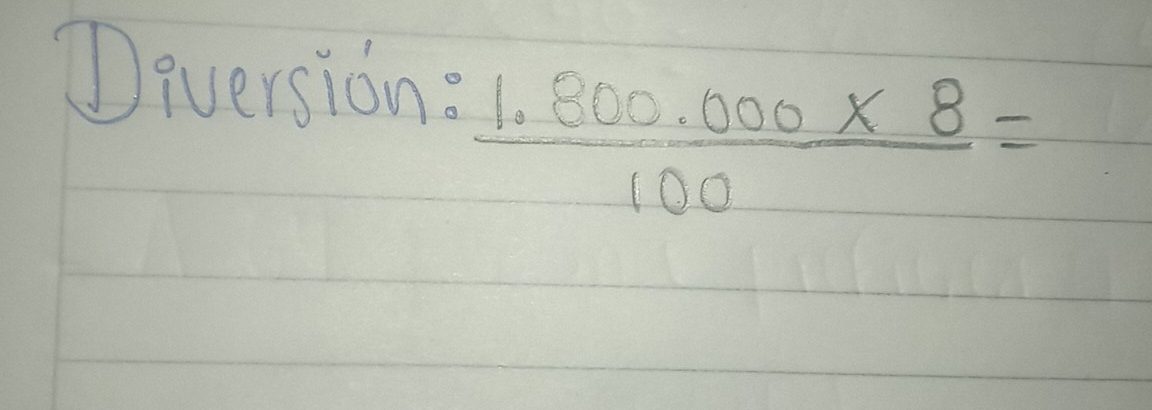 Diversión: 1.800.000 x 8 =
100